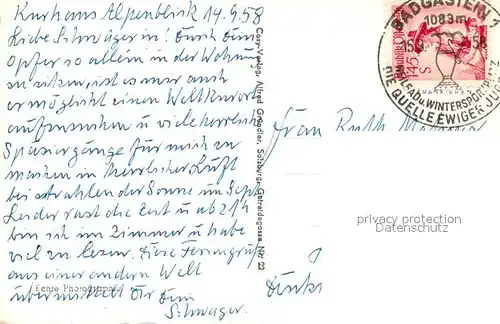 Kurhaus Alpenblick 14.9.58
Liebe Schwägerin! Durch Dein
Opfer so allein in der Wohnung
zu sitzen, ist es mir auch
ermöglicht einen Weltkurort
aufzusuchen u viele herrliche
Spaziergänge für mich zu
machen in herrlicher Luft
bei strahlender Sonne im Sept.
Leider rast die Zeit u ab 21h
bin ich im Zimmer u habe
viel zu lesen. Diese Feriengrüße
aus einer andern Welt
übermittelt Dir Dein
Schwager.
Echte Photographie
Cosy-Verlag, Alfred Gründler, Salzburg, Getreidegasse Nr. 22
BADGASTEIN
1083m
15.9. 58
HEILBAD u WINTERSPORTPLATZ
DIE QUELLE EWIGER JUGEND
REPUBLIK ÖSTERREICH
1.45
S
Frau Ruth
privacy protection
watermark